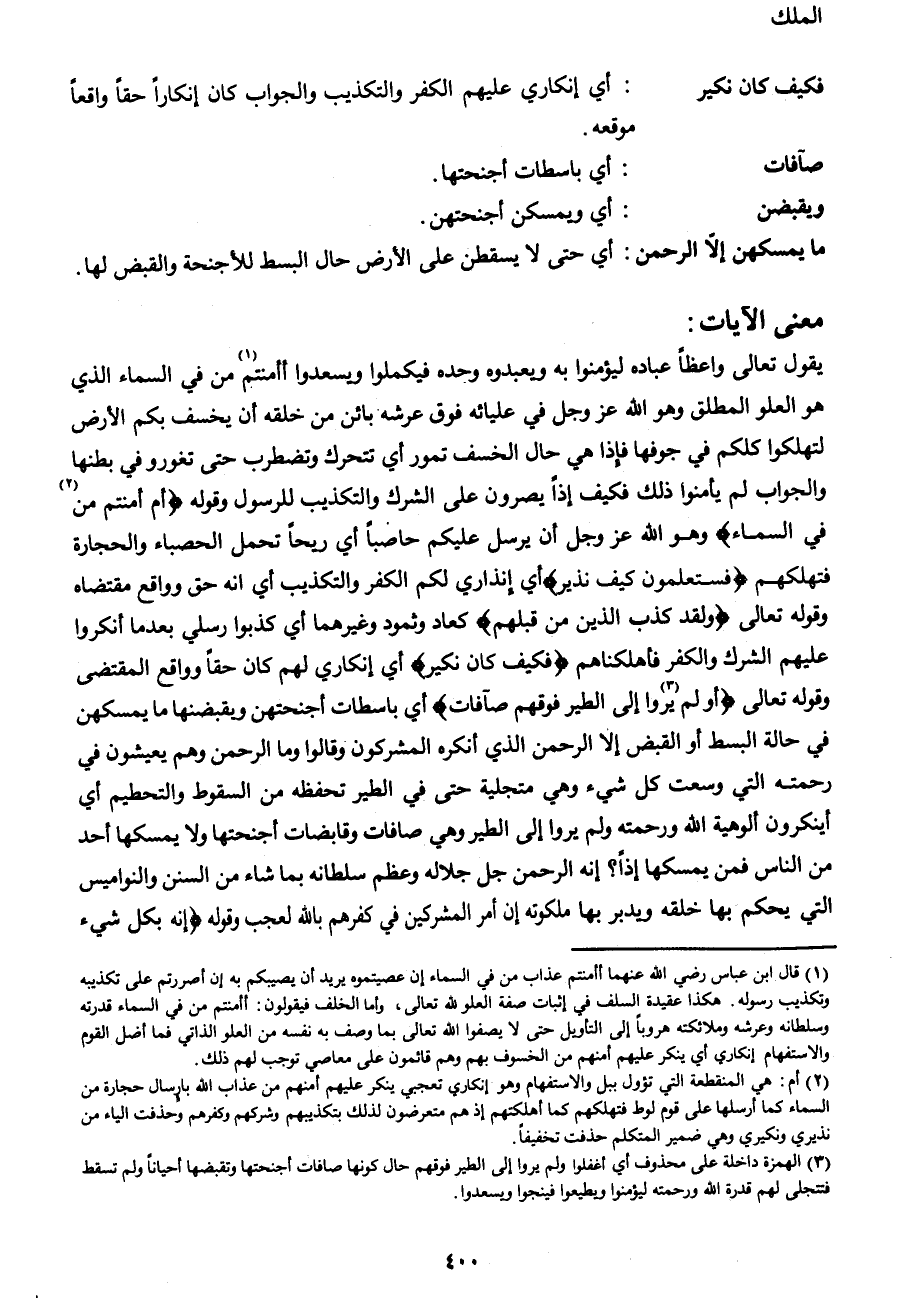 الملك
فكيف كان نكير : أي إنكاري عليهم الكفر والتكذيب والجواب كان إنكاراً حقاً واقعاً
موقعه .
صآفات : أي باسطات أجنحتها .
ويقبضن : أي ويمسكن أجنحتهن .
ما يمسكهن إلّا الرحمن : أي حتى لا يسقطن على الأرض حال البسط للأجنحة والقبض لها .
معنى الآيات :
يقول تعالى واعظاً عباده ليؤمنوا به ويعبدوه وحده فيكملوا ويسعدوا أأمنتم(١) من في السماء الذي
هو العلو المطلق وهو الله عز وجل في عليائه فوق عرشه بائن من خلقه أن يخسف بكم الأرض
لتهلكوا كلكم في جوفها فإذا هي حال الخسف تمور أي تتحرك وتضطرب حتى تغورو في بطنها
والجواب لم يأمنوا ذلك فكيف إذاً يصرون على الشرك والتكذيب للرسول وقوله ﴿أم أمنتم من(٢)
في السماء﴾ وهو الله عز وجل أن يرسل عليكم حاصباً أي ريحاً تحمل الحصباء والحجارة
فتهلكهم ﴿فستعلمون كيف نذير﴾أي إنذاري لكم الكفر والتكذيب أي انه حق وواقع مقتضاه
وقوله تعالى ﴿ولقد كذب الذين من قبلهم﴾ كعاد وثمود وغيرهما أي كذبوا رسلي بعدما أنكروا
عليهم الشرك والكفر فأهلكناهم ﴿فكيف كان نكير﴾ أي إنكاري لهم كان حقاً وواقع المقتضى
وقوله تعالى ﴿أو لم يروا(٣) إلى الطير فوقهم صآفات﴾ أي باسطات أجنحتهن ويقبضنها ما يمسكهن
في حالة البسط أو القبض إلا الرحمن الذي أنكره المشركون وقالوا وما الرحمن وهم يعيشون في
رحمته التي وسعت كل شيء وهي متجلية حتى في الطير تحفظه من السقوط والتحطيم أي
أينكرون ألوهية الله ورحمته ولم يروا إلى الطير وهي صافات وقابضات أجنحتها ولا يمسكها أحد
من الناس فمن يمسكها إذاً؟ إنه الرحمن جل جلاله وعظم سلطانه بما شاء من السنن والنواميس
التي يحكم بها خلقه ويدبر بها ملكوته إن أمر المشركين في كفرهم بالله لعجب وقوله ﴿إنه بكل شيء
(١) قال ابن عباس رضي الله عنهما أأمنتم عذاب من في السماء إن عصيتموه يريد أن يصيبكم به إن أصررتم على تكذيبه
وتكذيب رسوله . هكذا عقيدة السلف في إثبات صفة العلو لله تعالى، وأما الخلف فيقولون: أأمنتم من في السماء قدرته
وسلطانه وعرشه وملائكته هروباً إلى التأويل حتى لا يصفوا الله تعالى بما وصف به نفسه من العلو الذاتي فما أضل القوم
والاستفهام إنكاري أي ينكر عليهم أمنهم من الخسوف بهم وهم قائمون على معاصي توجب لهم ذلك .
(٢) أم: هي المنقطعة التي تؤول ببل والاستفهام وهو إنكاري تعجبي ينكر عليهم أمنهم من عذاب الله بإرسال حجارة من
السماء كما أرسلها على قوم لوط فتهلكهم كما أهلكتهم إذ هم متعرضون لذلك بتكذيبهم وشركهم وكفرهم وحذفت الياء من
نذيري ونكيري وهي ضمير المتكلم حذفت تخفيفاً .
(٣) الهمزة داخلة على محذوف أي أغفلوا ولم يروا إلى الطير فوقهم حال كونها صافات أجنحتها وتقبضها أحياناً ولم تسقط
فتتجلى لهم قدرة الله ورحمته ليؤمنوا ويطيعوا فينجوا ويسعدوا .
٤٠٠